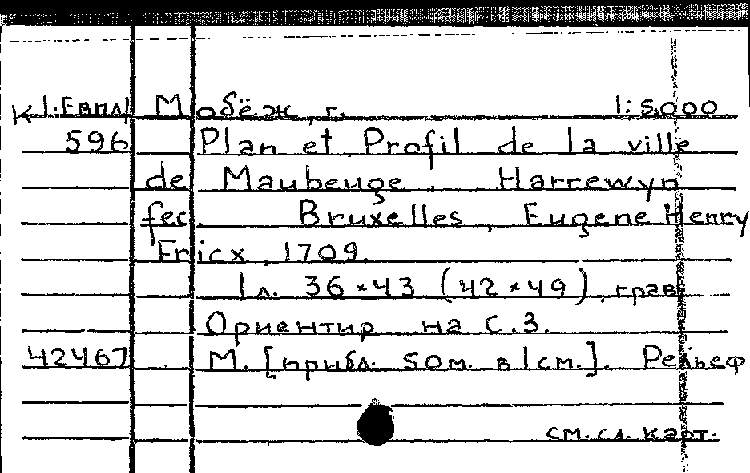 К 1.Евпл Мобёж, г. 1:5.000
596 Plan et Profil de la ville
de Maubeuge. Harrewyn
fec. Bruxelles, Eugene Henry
Fricx, 1709.
1 л. 36×43 (42×49), грав.
Ориентир. на С.З.
42467 М. [прибл. 50м. в 1см.]. Рельеф
см. сл. карт.